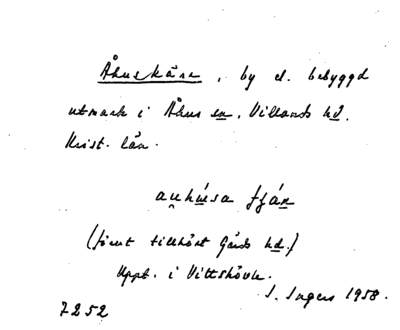 Åhuskärr, by el. bebyggd
utmark i Åhus sn, Villands hd.
Krist. län.
(förut tillhört Gärds hd.)
Uppt. i Vittskövle.
I. Ingers 1958.
7252